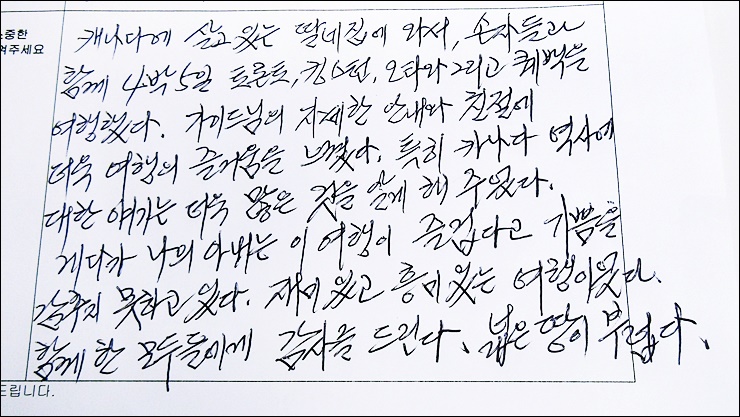 소중한
겨주세요
캐나다에 살고 있는 딸네집에 와서, 손자들과
함께 4박5일 토론토, 킹스턴, 오타와 그리고 퀘백을
여행했다. 가이드님의 자세한 안내와 친절에
더욱 여행의 즐거움을 느꼈다. 특히 카나다 역사에
대한 얘기는 더욱 많은 것을 알게 해 주었다.
게다가 나의 아내는 이 여행이 즐겁다고 기쁨을
감추지 못하고 있다. 재미있고 흥미있는 여행이었다.
함께 한 모두들에게 감사를 드린다. 넓은 땅이 부럽다.
드립니다.